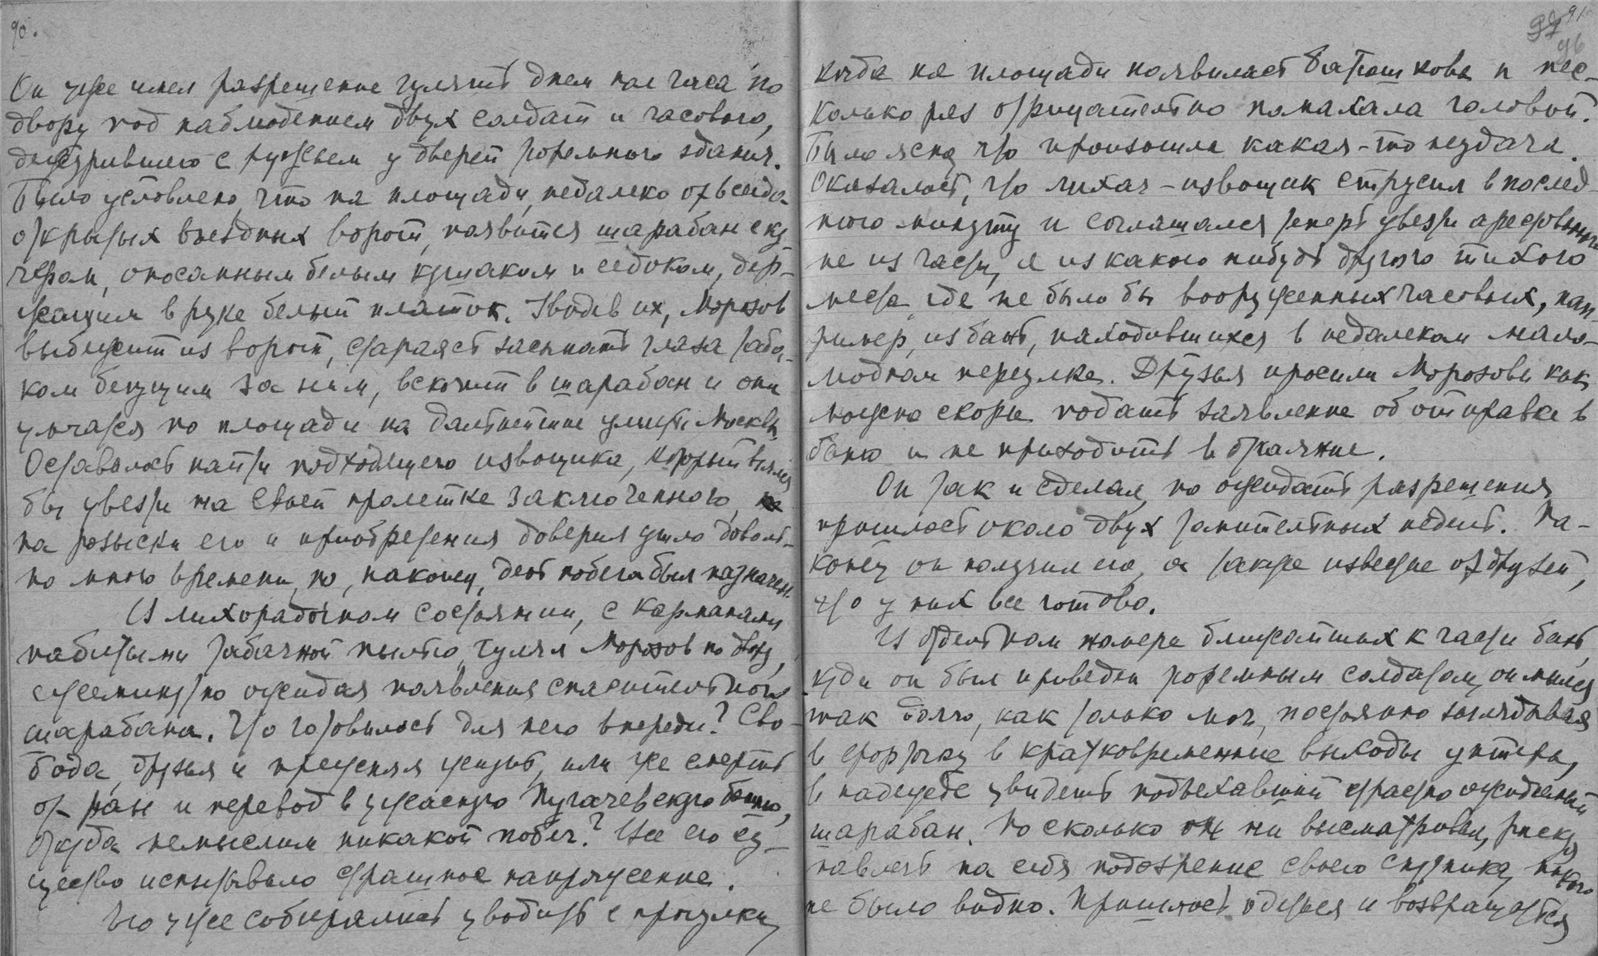 90.
Он уже имел разрешение гулять днем пол часа по
двору под наблюдением двух солдат и часового,
дежурившего с ружьем у дверей тюремного здания.
Было условлено, что на площади, недалеко от всегда
открытых въездных ворот, появится шарабан с ку-
чером, опоясанным белым кушаком и седоком, дер-
жащим в руке белый платок. Увидев их, Морозов
выбежит из ворот, стараясь засыпать глаза таба-
ком бегущим за ним, вскочит в шарабан и они
умчатся по площади на дальнейшие улицы Москвы.
Оставалось найти подходящего извощика, который взялся
бы увезти на своей пролетке заключенного,
на розыски его и приобретения доверия ушло доволь-
но много времени, но, наконец, день побега был назначен.
В лихорадочном состоянии, с карманами
набитыми табачной пылью, гулял Морозов по двору,
ежеминутно ожидая появления спасительного
шарабана. Что готовилось для него впереди? Сво-
бода, друзья и прежняя жизнь, или же смерть
от ран и перевод в ужасную Пугачевскую башню,
откуда немыслим никакой побег? Все его су-
щество испытывало страшное напряжение.
Его уже собирались уводить с прогулки,
91
96
когда на площади появилась Батюшкова и нес-
колько раз отрицательно помахала головой.
Было ясно, что произошла какая-то неудача.
Оказалось, что лихач-извощик струсил в послед-
нюю минуту и соглашался теперь увезти арестованного
не из части, а из какого нибудь другого тихого
места, где не было бы вооруженных часовых, нап-
ример, из бань, находившихся в недалеком мало-
людном переулке. Друзья просили Морозова как
можно скорее подать заявление об отправке в
баню и не приходить в отчаяние.
Он так и сделал, но ожидать разрешения
пришлось около двух томительных недель. На-
конец он получил его, а также известие от друзей,
что у них все готово.
В отдельном номере ближайших к части бань,
куда он был приведен тюремным солдатом, он мылся
так долго, как только мог, постоянно заглядывая
в форточку в кратковременные выходы унтера,
в надежде увидеть подъехавший страстно ожидаемый
шарабан. Но сколько он ни высматривал, рискуя
навлечь на себя подозрение своего спутника, никого
не было видно. Пришлось одеться и возвращаться